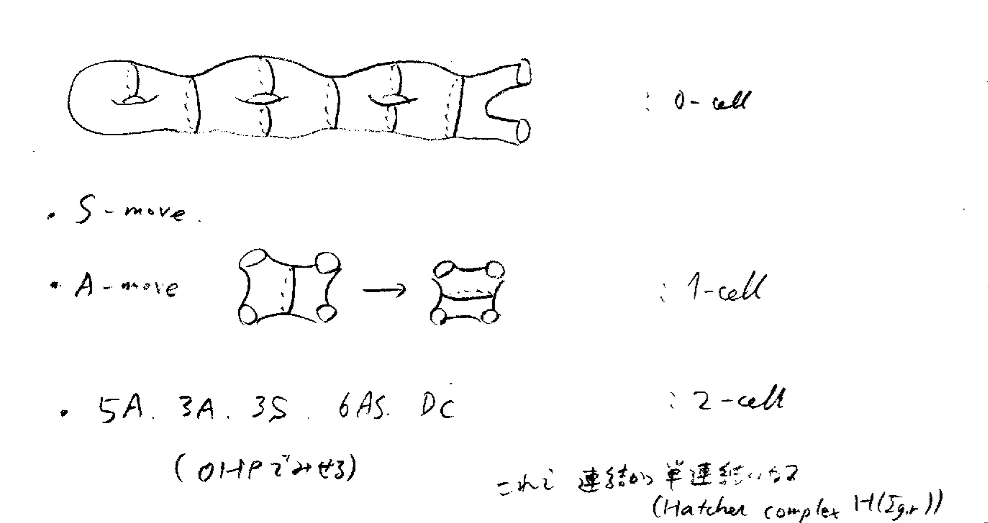 : 0-cell
• S-move.
• A-move
: 1-cell
• 5A. 3A. 3S. 6AS. DC
: 2-cell
(OHPでみせる)
これで 連結かつ単連結になる
(Hatcher complex H(Σg,r))